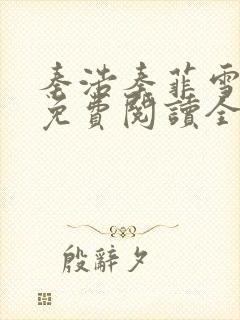 秦浩秦菲雪
免費閱讀全
殷辭夕